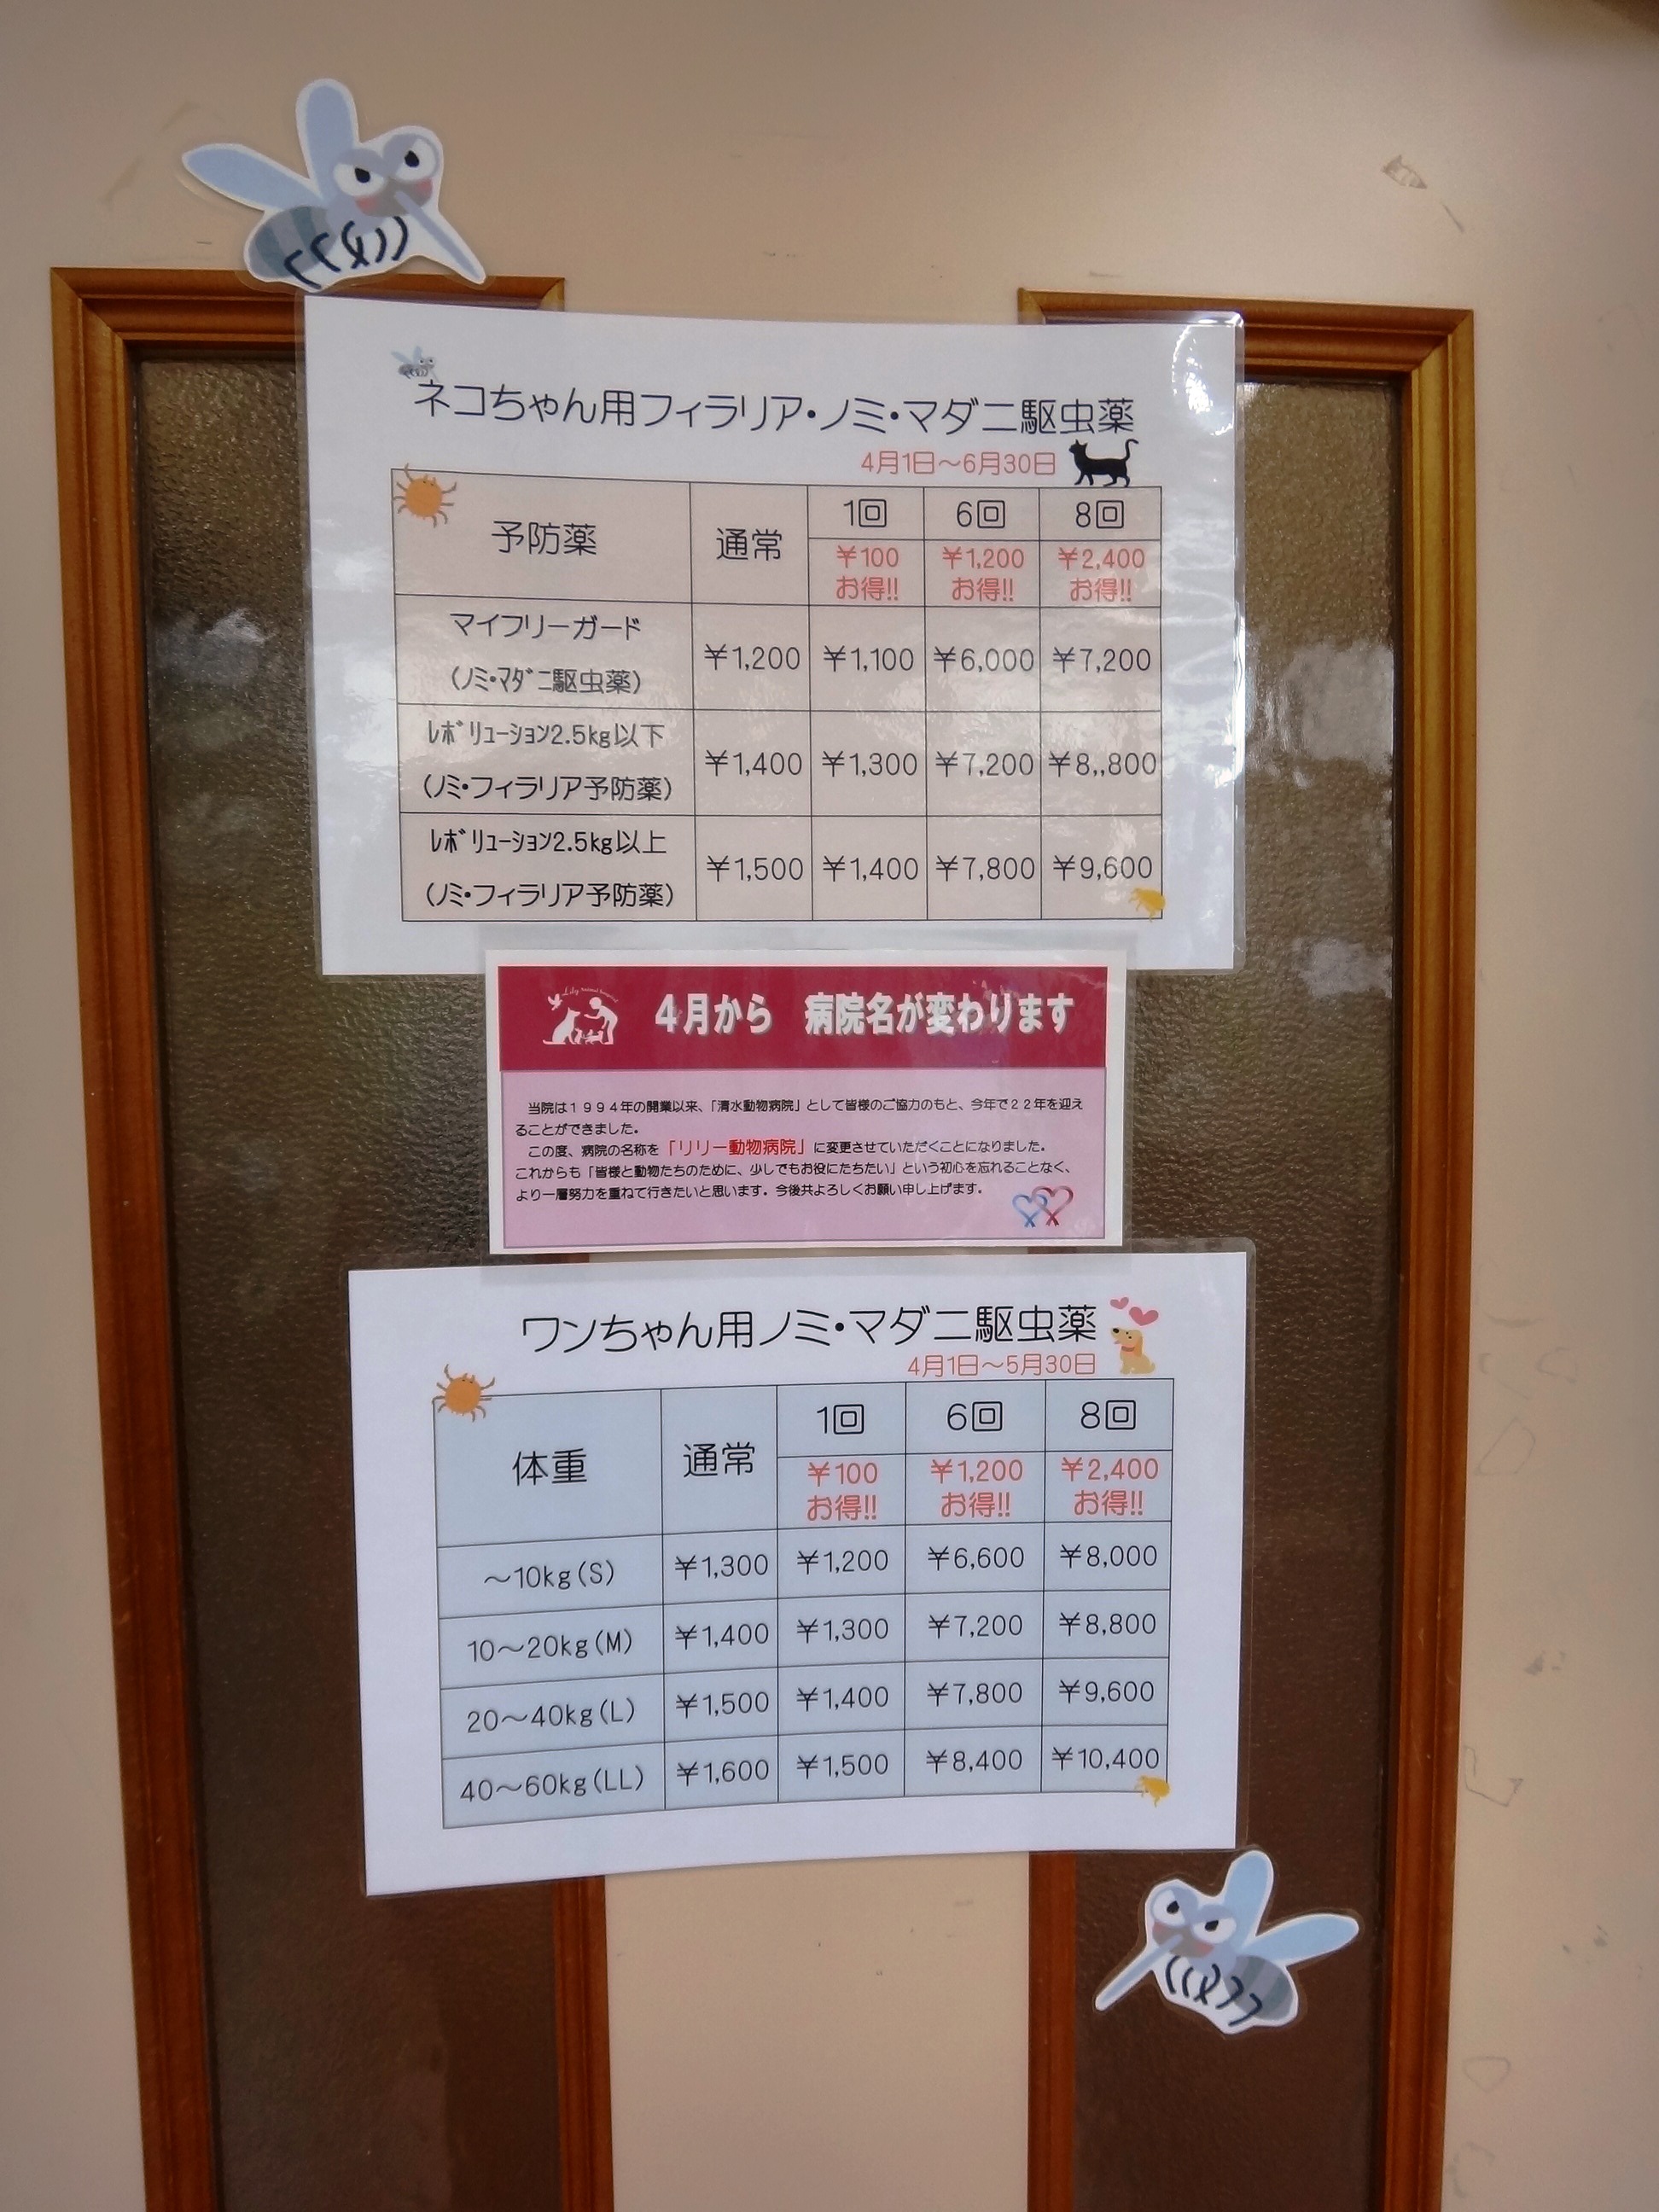 ネコちゃん用フィラリア・ノミ・マダニ駆虫薬
4月1日～6月30日
予防薬 通常 1回 6回 8回
￥100 ￥1,200 ￥2,400
お得!! お得!! お得!!
マイフリーガード
(ノミ・ﾏﾀﾞﾆ駆虫薬)
￥1,200 ￥1,100 ￥6,000 ￥7,200
ﾚﾎﾞﾘｭｰｼｮﾝ2.5kg以下
(ノミ・フィラリア予防薬)
￥1,400 ￥1,300 ￥7,200 ￥8,,800
ﾚﾎﾞﾘｭｰｼｮﾝ2.5kg以上
(ノミ・フィラリア予防薬)
￥1,500 ￥1,400 ￥7,800 ￥9,600
Lily
4月から 病院名が変わります
当院は１９９４年の開業以来、「清水動物病院」として皆様のご協力のもと、今年で２２年を迎え
ることができました。
この度、病院の名称を「リリー動物病院」に変更させていただくことになりました。
これからも「皆様と動物たちのために、少しでもお役にたちたい」という初心を忘れることなく、
より一層努力を重ねて行きたいと思います。今後共よろしくお願い申し上げます。
ワンちゃん用ノミ・マダニ駆虫薬
4月1日～5月30日
体重 通常 1回 6回 8回
￥100 ￥1,200 ￥2,400
お得!! お得!! お得!!
～10kg(S) ￥1,300 ￥1,200 ￥6,600 ￥8,000
10～20kg(M) ￥1,400 ￥1,300 ￥7,200 ￥8,800
20～40kg(L) ￥1,500 ￥1,400 ￥7,800 ￥9,600
40～60kg(LL) ￥1,600 ￥1,500 ￥8,400 ￥10,400